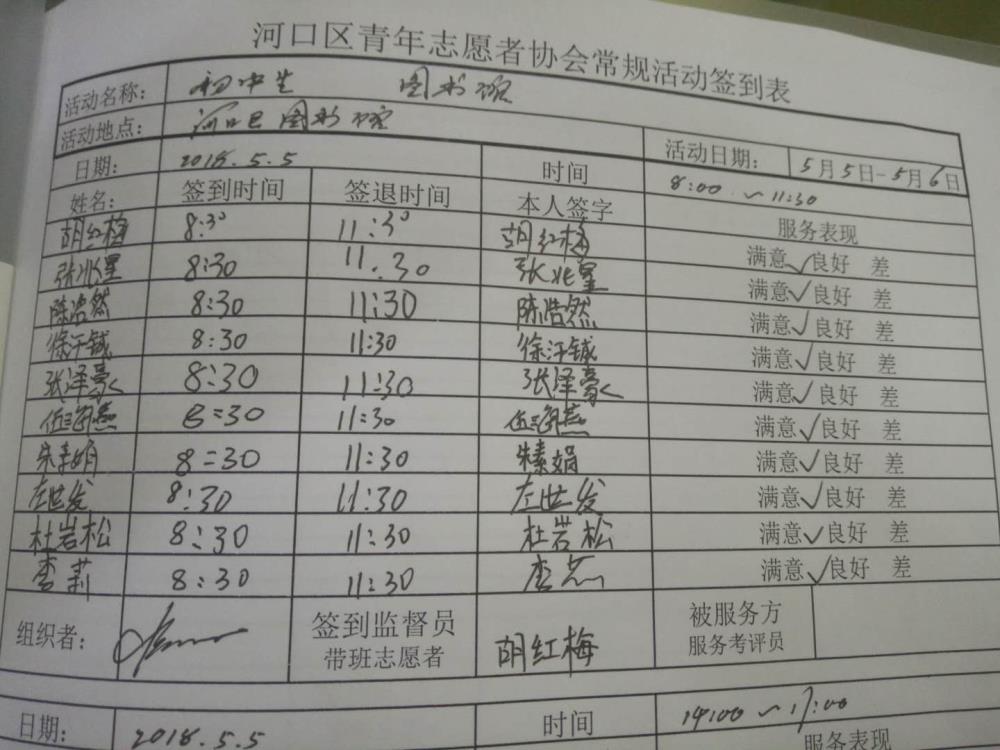 河口区青年志愿者协会常规活动签到表
活动名称: 初中生 图书馆
活动地点: 河口区图书馆 活动日期: 5月5日-5月6日
日期: 2018.5.5 时间 8:00 ~ 11:30
姓名: 签到时间 签退时间 本人签字 服务表现
胡红梅 8:30 11:30 胡红梅 满意√良好 差
张兆星 8:30 11:30 张兆星 满意√良好 差
陈浩然 8:30 11:30 陈浩然 满意√良好 差
徐汗钺 8:30 11:30 徐汗钺 满意√良好 差
张泽豪 8:30 11:30 张泽豪 满意√良好 差
伍海燕 8:30 11:30 伍海燕 满意√良好 差
朱素娟 8:30 11:30 朱素娟 满意√良好 差
左世发 8:30 11:30 左世发 满意√良好 差
杜岩松 8:30 11:30 杜岩松 满意√良好 差
李莉 8:30 11:30 李莉 满意√良好 差
组织者: 签到监督员 带班志愿者 胡红梅 被服务方 服务考评员
日期: 2018.5.5 时间 14:00 ~ 17:00
服务表现